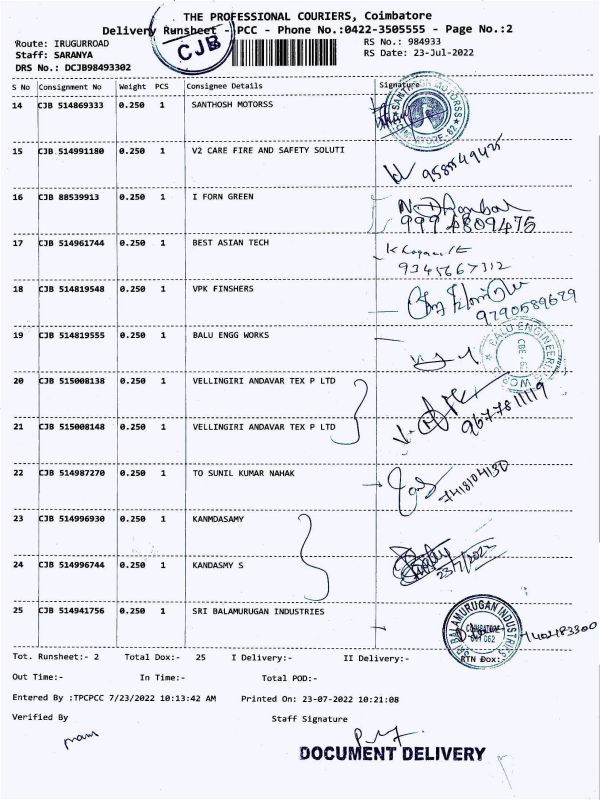 THE PROFESSIONAL COURIERS, Coimbatore
Delivery Runsheet - PCC - Phone No.:0422-3505555 - Page No.:2
Route: IRUGURROAD
RS No.: 984933
Staff: SARANYA
RS Date: 23-Jul-2022
DRS No.: DCJB98493302
CJB
S No Consignment No Weight PCS Consignee Details Signature
14 CJB 514869333 0.250 1 SANTHOSH MOTORSS
15 CJB 514991180 0.250 1 V2 CARE FIRE AND SAFETY SOLUTI
16 CJB 88539913 0.250 1 I FORN GREEN
9994809475
17 CJB 514961744 0.250 1 BEST ASIAN TECH
9345667312
18 CJB 514819548 0.250 1 VPK FINSHERS
9790589679
19 CJB 514819555 0.250 1 BALU ENGG WORKS
20 CJB 515008138 0.250 1 VELLINGIRI ANDAVAR TEX P LTD
21 CJB 515008148 0.250 1 VELLINGIRI ANDAVAR TEX P LTD
9677811119
22 CJB 514987270 0.250 1 TO SUNIL KUMAR NAHAK
7418104130
23 CJB 514996930 0.250 1 KANMDASAMY
24 CJB 514996744 0.250 1 KANDASMY S
23/7/2022
25 CJB 514941756 0.250 1 SRI BALAMURUGAN INDUSTRIES
SRI BALAMURUGAN INDUSTRIES
Tot. Runsheet:- 2 Total Dox:- 25 I Delivery:- II Delivery:- RTN Dox:-
Out Time:- In Time:- Total POD:-
Entered By :TPCPCC 7/23/2022 10:13:42 AM Printed On: 23-07-2022 10:21:08
Verified By Staff Signature
DOCUMENT DELIVERY